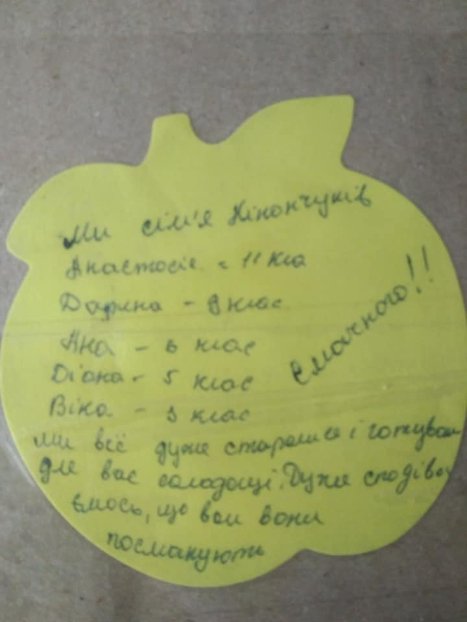 Ми сім'я Нікончуків
Анастасія - 11 кла
Дарина - 9 клас
Яна - 6 клас
Діана - 5 клас
Віка - 3 клас
Смачного!!
Ми всі дуже старалися і готували
для вас солодощі. Дуже сподіва
ємось, що вам вони
посмакують